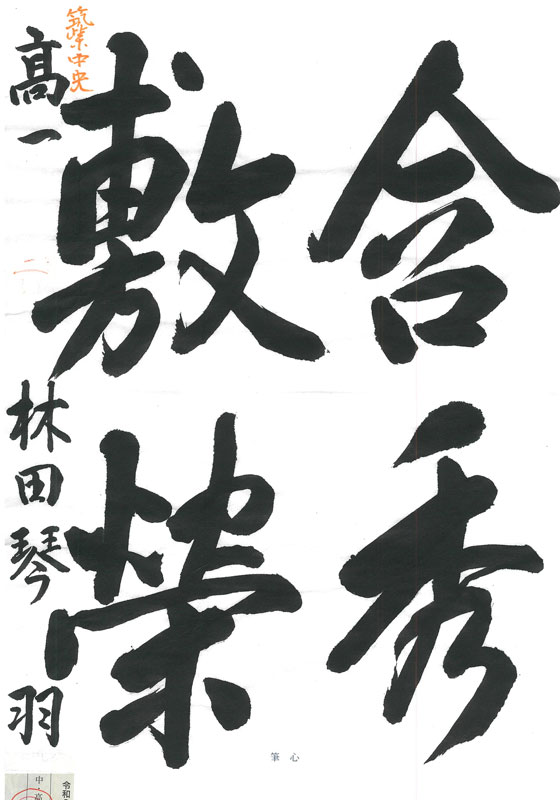 含秀
敷榮
筑紫中央
高一 林田琴羽
二
心筆
令和
中・高